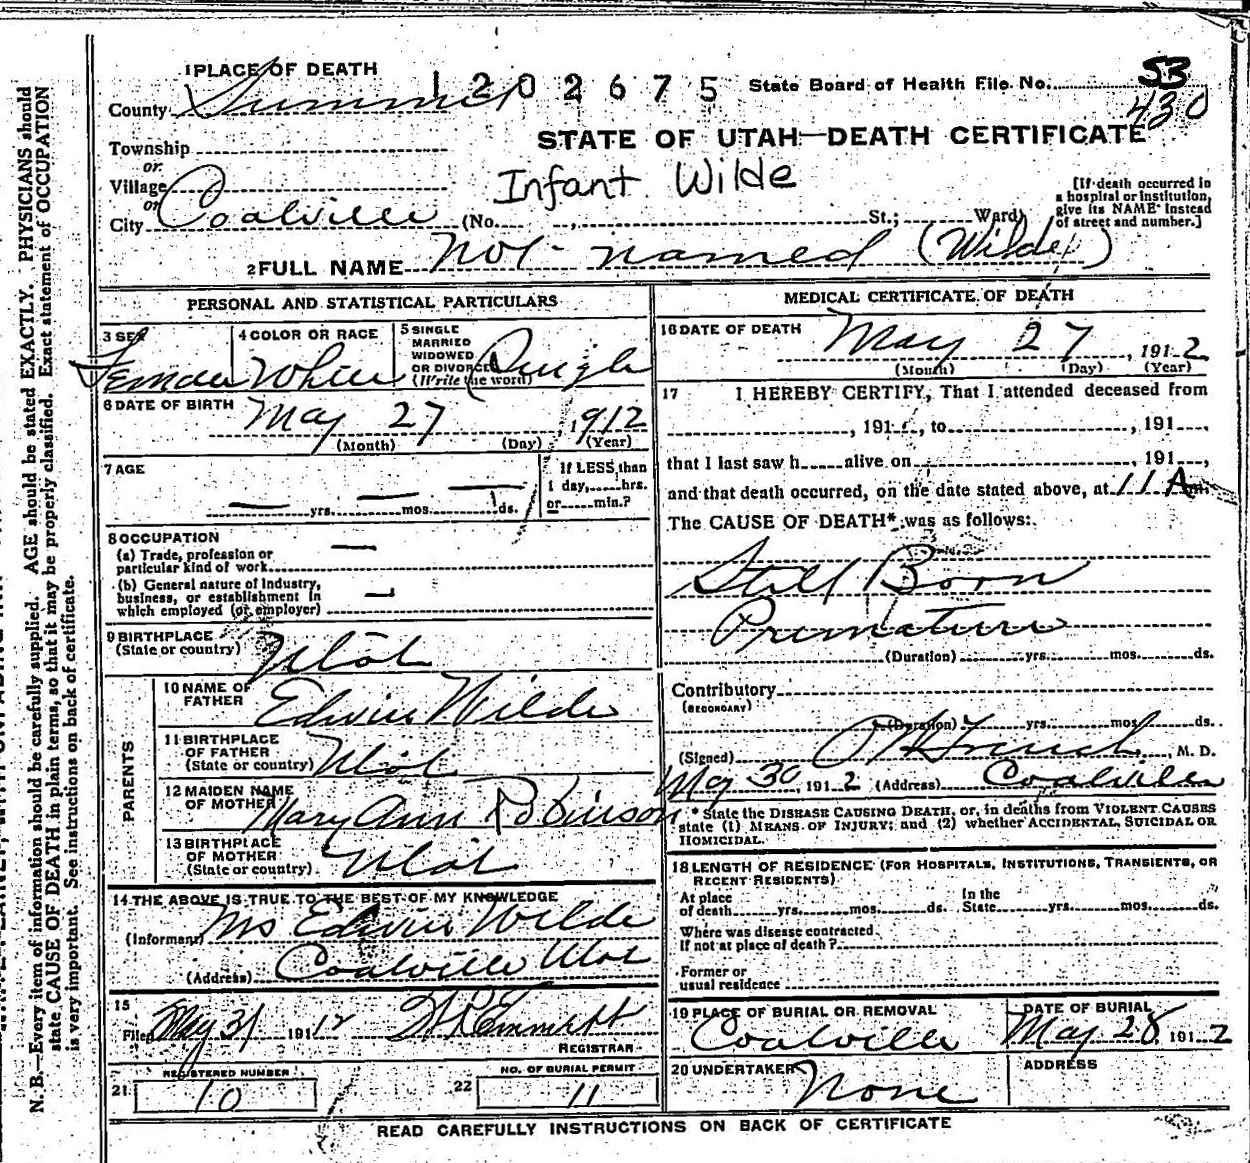 1 PLACE OF DEATH
1 2 0 2 6 7 5
State Board of Health File No. 53
430
County Summit
STATE OF UTAH—DEATH CERTIFICATE
Township
or
Village
or
Infant Wilde
City Coalville (No. , St.; Ward)
[If death occurred in
a hospital or institution,
give its NAME instead
of street and number.]
2 FULL NAME Not named (Wilde)
PERSONAL AND STATISTICAL PARTICULARS
3 SEX Female
4 COLOR OR RACE White
5 SINGLE
MARRIED
WIDOWED
OR DIVORCED
(Write the word) Single
6 DATE OF BIRTH
May 27, 1912
(Month) (Day) (Year)
7 AGE
— yrs. — mos. — ds.
If LESS than
1 day, hrs.
or min.?
8 OCCUPATION
(a) Trade, profession or
particular kind of work —
(b) General nature of Industry,
business, or establishment in
which employed (or employer) —
9 BIRTHPLACE
(State or country) Utah
PARENTS
10 NAME OF
FATHER Edwin Wilde
11 BIRTHPLACE
OF FATHER
(State or country) Utah
12 MAIDEN NAME
OF MOTHER Mary Ann Robinson
13 BIRTHPLACE
OF MOTHER
(State or country) Utah
14 THE ABOVE IS TRUE TO THE BEST OF MY KNOWLEDGE
(Informant) Mrs Edwin Wilde
(Address) Coalville Utah
15
Filed May 31 1912
Emmett
REGISTRAR
21 REGISTERED NUMBER
10
22 NO. OF BURIAL PERMIT
11
MEDICAL CERTIFICATE OF DEATH
16 DATE OF DEATH
May 27, 1912
(Month) (Day) (Year)
17 I HEREBY CERTIFY, That I attended deceased from
, 191 , to , 191 ,
that I last saw h alive on , 191 ,
and that death occurred, on the date stated above, at 11 A m.
The CAUSE OF DEATH* was as follows:
Still Born
Premature
(Duration) yrs. mos. ds.
Contributory
(SECONDARY)
(Duration) yrs. mos. ds.
(Signed) , M. D.
May 30, 1912 (Address) Coalville
* State the DISEASE CAUSING DEATH, or, in deaths from VIOLENT CAUSES
state (1) MEANS OF INJURY; and (2) whether ACCIDENTAL, SUICIDAL OR
HOMICIDAL.
18 LENGTH OF RESIDENCE (FOR HOSPITALS, INSTITUTIONS, TRANSIENTS, OR
RECENT RESIDENTS)
At place
of death yrs. mos. ds.
In the
State yrs. mos. ds.
Where was disease contracted
If not at place of death?
Former or
usual residence
19 PLACE OF BURIAL OR REMOVAL
Coalville
DATE OF BURIAL
May 28 1912
20 UNDERTAKER
None
ADDRESS
READ CAREFULLY INSTRUCTIONS ON BACK OF CERTIFICATE
N. B.—Every item of information should be carefully supplied. AGE should be stated EXACTLY. PHYSICIANS should
state CAUSE OF DEATH in plain terms, so that it may be properly classified. Exact statement of OCCUPATION
is very important. See instructions on back of certificate.